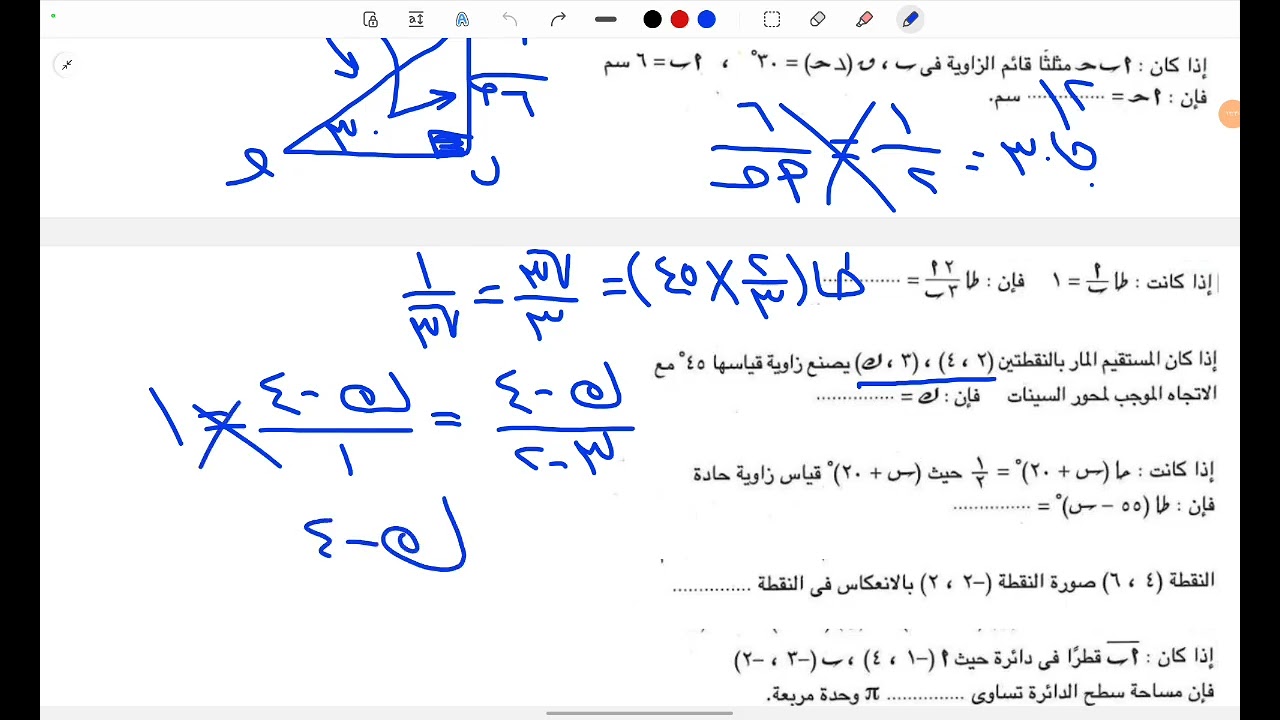 إذا كان : ا ب حـ مثلثًا قائم الزاوية فى ب ، ق (∠ حـ) = ٣٠° ، ا ب = ٦ سم
فإن : ا حـ = ............... سم.
١٢
٦ / ا حـ = ١ / ٢ = جا ٣٠
٣٠
حـ
ب
إذا كانت : طا ا/ب = ١ فإن : طا ٢ا/٣ب = ...............
طا (٢/٣ × ٤٥) = √٣/٣ = ١/√٣
إذا كان المستقيم المار بالنقطتين (٢ ، ٤) ، (٣ ، ك) يصنع زاوية قياسها ٤٥° مع
الاتجاه الموجب لمحور السينات فإن : ك = ...............
ك - ٤ / ٣ - ٢ = ك - ٤ / ١ = ١
ك - ٤
إذا كانت : حا (س + ٢٠)° = ١/٢ حيث (س + ٢٠)° قياس زاوية حادة
فإن : طا (٥٥ – س)° = ...............
النقطة (٤ ، ٦) صورة النقطة (–٢ ، ٢) بالانعكاس فى النقطة ...............
إذا كان : ا ب قطرًا فى دائرة حيث ا (–١ ، ٤) ، ب (–٣ ، –٢)
فإن مساحة سطح الدائرة تساوى ............... π وحدة مربعة.